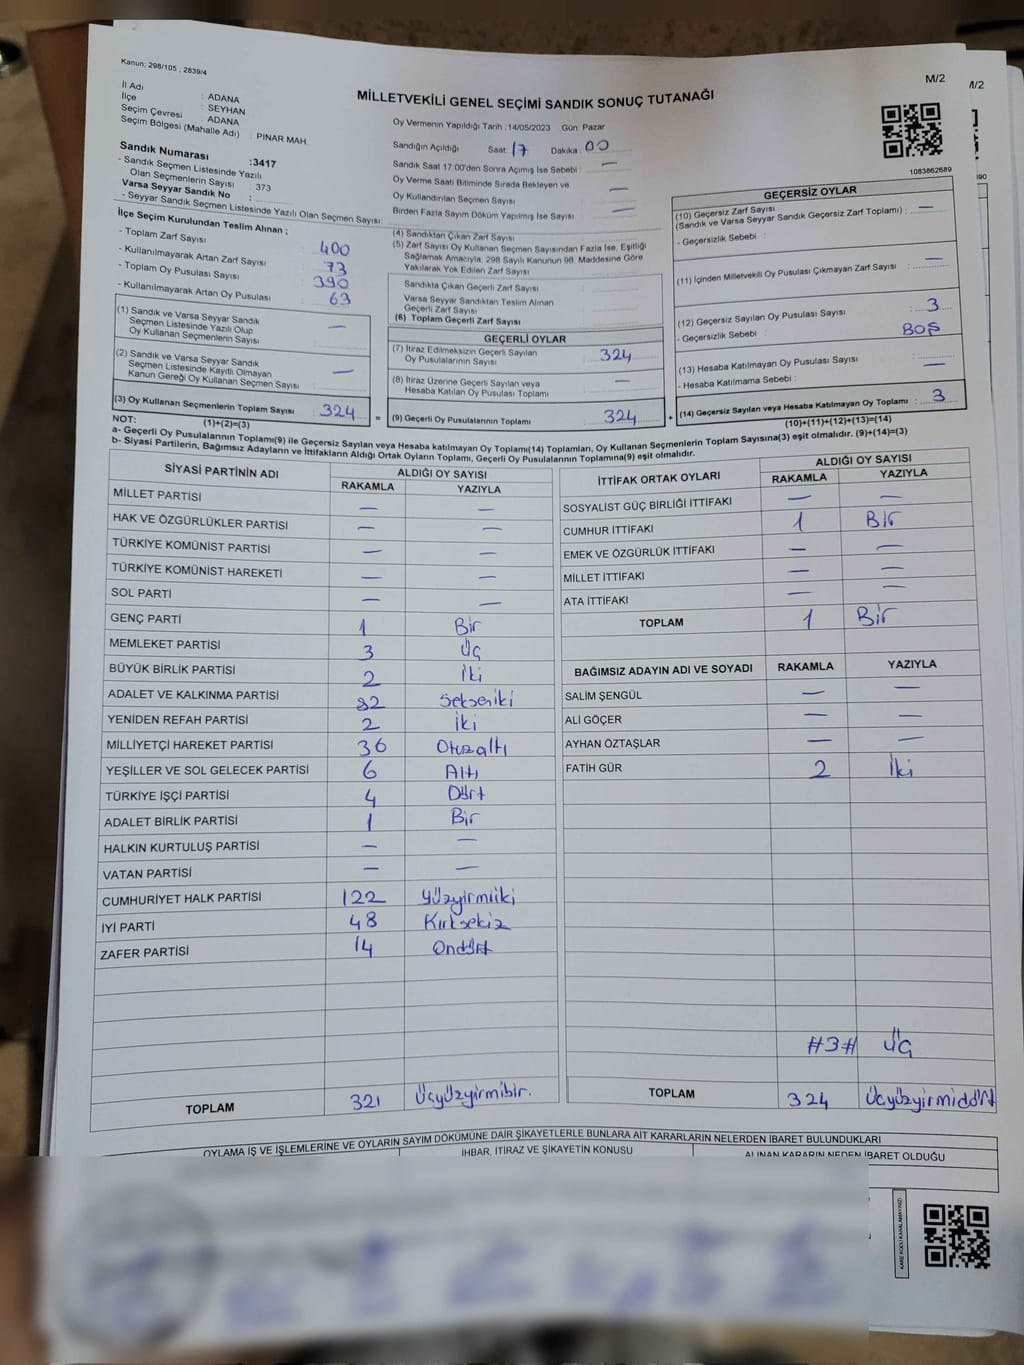 Kanun; 298/105 , 2839/4
M/2
MİLLETVEKİLİ GENEL SEÇİMİ SANDIK SONUÇ TUTANAĞI
İl Adı : ADANA
İlçe : SEYHAN
Seçim Çevresi : ADANA
Seçim Bölgesi (Mahalle Adı) : PINAR MAH.
Sandık Numarası :3417
- Sandık Seçmen Listesinde Yazılı
Olan Seçmenlerin Sayısı : 373
Varsa Seyyar Sandık No :
- Seyyar Sandık Seçmen Listesinde Yazılı Olan Seçmen Sayısı:
İlçe Seçim Kurulundan Teslim Alınan ;
- Toplam Zarf Sayısı 400
- Kullanılmayarak Artan Zarf Sayısı 73
- Toplam Oy Pusulası Sayısı 390
- Kullanılmayarak Artan Oy Pusulası 63
(1) Sandık ve Varsa Seyyar Sandık
Seçmen Listesinde Yazılı Olup
Oy Kullanan Seçmenlerin Sayısı : —
(2) Sandık ve Varsa Seyyar Sandık
Seçmen Listesinde Kayıtlı Olmayan
Kanun Gereği Oy Kullanan Seçmen Sayısı : —
(3) Oy Kullanan Seçmenlerin Toplam Sayısı : 324
(1)+(2)=(3)
Oy Vermenin Yapıldığı Tarih :14/05/2023 Gün: Pazar
Sandığın Açıldığı Saat : 17 Dakika : 00
Sandık Saat 17:00'den Sonra Açımış İse Sebebi : —
Oy Verme Saati Bitiminde Sırada Bekleyen ve
Oy Kullandırılan Seçmen Sayısı —
Birden Fazla Sayım Döküm Yapılmış İse Sayısı —
(4) Sandıktan Çıkan Zarf Sayısı
(5) Zarf Sayısı Oy Kullanan Seçmen Sayısından Fazla İse, Eşitliği
Sağlamak Amacıyla, 298 Sayılı Kanunun 98. Maddesine Göre
Yakılarak Yok Edilen Zarf Sayısı
Sandıkta Çıkan Geçerli Zarf Sayısı
Varsa Seyyar Sandıktan Teslim Alınan
Geçerli Zarf Sayısı
(6) Toplam Geçerli Zarf Sayısı
GEÇERLİ OYLAR
(7) İtiraz Edilmeksizin Geçerli Sayılan
Oy Pusulalarının Sayısı 324
(8) İtiraz Üzerine Geçerli Sayılan veya
Hesaba Katılan Oy Pusulası Toplamı —
= (9) Geçerli Oy Pusulalarının Toplamı 324
1083862689
GEÇERSİZ OYLAR
(10) Geçersiz Zarf Sayısı
(Sandık ve Varsa Seyyar Sandık Geçersiz Zarf Toplamı) : —
- Geçersizlik Sebebi :
(11) İçinden Milletvekili Oy Pusulası Çıkmayan Zarf Sayısı : —
(12) Geçersiz Sayılan Oy Pusulası Sayısı : 3
- Geçersizlik Sebebi : BOŞ
(13) Hesaba Katılmayan Oy Pusulası Sayısı :
- Hesaba Katılmama Sebebi : —
+ (14) Geçersiz Sayılan veya Hesaba Katılmayan Oy Toplamı : 3
(10)+(11)+(12)+(13)=(14)
NOT:
a- Geçerli Oy Pusulalarının Toplamı(9) ile Geçersiz Sayılan veya Hesaba katılmayan Oy Toplamı(14) Toplamları, Oy Kullanan Seçmenlerin Toplam Sayısına(3) eşit olmalıdır. (9)+(14)=(3)
b- Siyasi Partilerin, Bağımsız Adayların ve İttifakların Aldığı Ortak Oyların Toplamı, Geçerli Oy Pusulalarının Toplamına(9) eşit olmalıdır.
SİYASİ PARTİNİN ADI ALDIĞI OY SAYISI
RAKAMLA YAZIYLA
MİLLET PARTİSİ — —
HAK VE ÖZGÜRLÜKLER PARTİSİ — —
TÜRKİYE KOMÜNİST PARTİSİ — —
TÜRKİYE KOMÜNİST HAREKETİ — —
SOL PARTİ — —
GENÇ PARTİ 1 Bir
MEMLEKET PARTİSİ 3 Üç
BÜYÜK BİRLİK PARTİSİ 2 İki
ADALET VE KALKINMA PARTİSİ 82 Sekseniki
YENİDEN REFAH PARTİSİ 2 İki
MİLLİYETÇİ HAREKET PARTİSİ 36 Otuzaltı
YEŞİLLER VE SOL GELECEK PARTİSİ 6 Altı
TÜRKİYE İŞÇİ PARTİSİ 4 Dört
ADALET BİRLİK PARTİSİ 1 Bir
HALKIN KURTULUŞ PARTİSİ — —
VATAN PARTİSİ — —
CUMHURİYET HALK PARTİSİ 122 Yüzyirmiiki
İYİ PARTİ 48 Kırksekiz
ZAFER PARTİSİ 14 Ondört
TOPLAM 321 Üçyüzyirmibir.
İTTİFAK ORTAK OYLARI ALDIĞI OY SAYISI
RAKAMLA YAZIYLA
SOSYALİST GÜÇ BİRLİĞİ İTTİFAKI — —
CUMHUR İTTİFAKI 1 Bir
EMEK VE ÖZGÜRLÜK İTTİFAKI — —
MİLLET İTTİFAKI — —
ATA İTTİFAKI — —
TOPLAM 1 Bir
BAĞIMSIZ ADAYIN ADI VE SOYADI RAKAMLA YAZIYLA
SALİM ŞENGÜL — —
ALİ GÖÇER — —
AYHAN ÖZTAŞLAR — —
FATİH GÜR 2 İki
#3# Üç
TOPLAM 324 Üçyüzyirmidört
OYLAMA İŞ VE İŞLEMLERİNE VE OYLARIN SAYIM DÖKÜMÜNE DAİR ŞİKAYETLERLE BUNLARA AİT KARARLARIN NELERDEN İBARET BULUNDUKLARI
İHBAR, İTİRAZ VE ŞİKAYETİN KONUSU
ALINAN KARARIN NEDEN İBARET OLDUĞU
KARE KODU KARALAMAYINIZ!
M/2